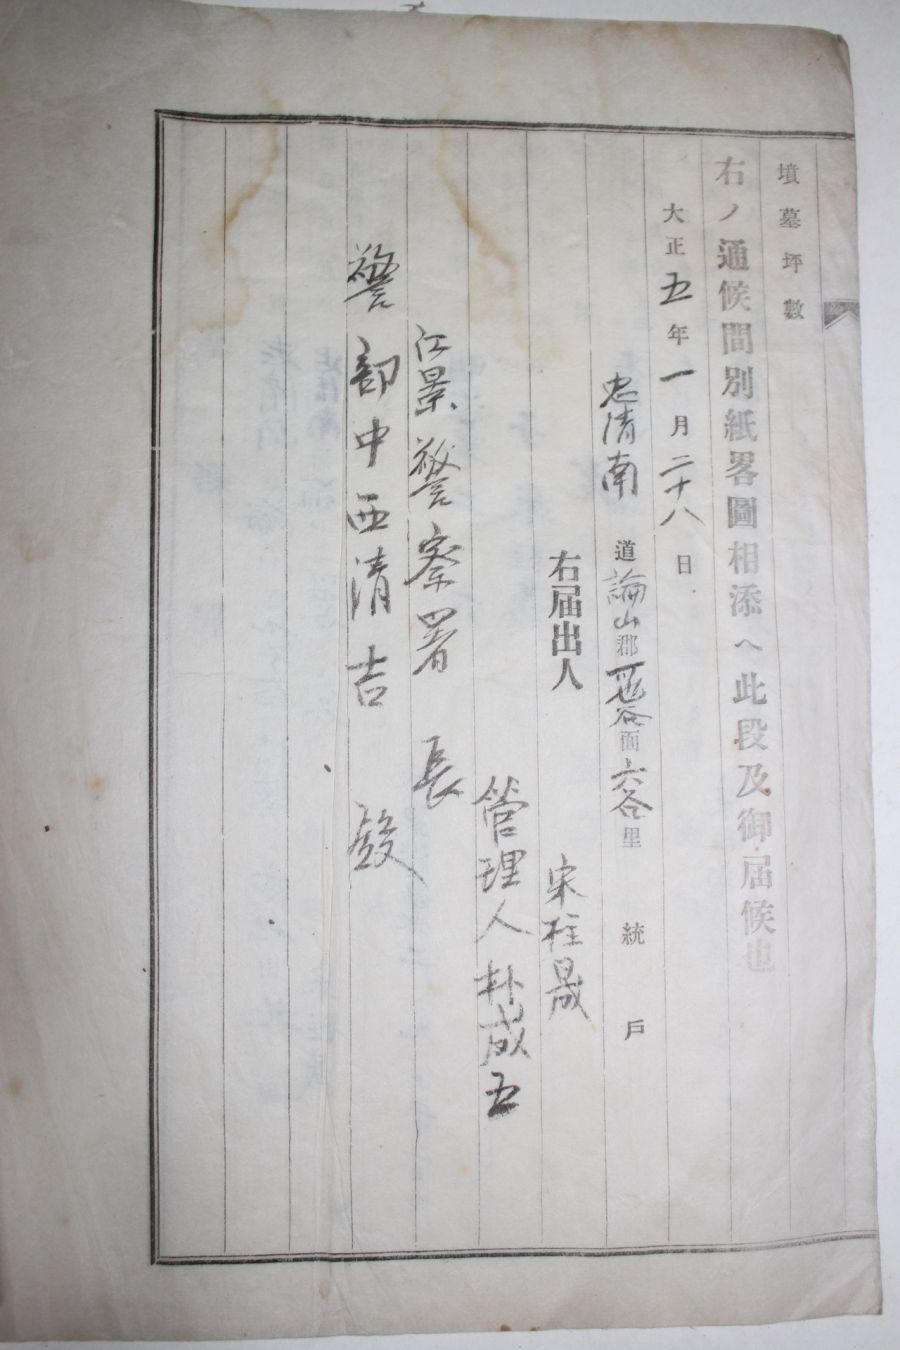 墳墓坪數
右ノ通候間別紙畧圖相添ヘ此段及御届候也
大正五年一月二十八日
忠清南道論山郡 谷面六谷里 統 戶
右届出人 宋柱晟
管理人 朴咸五
江景警察署長
警部中西清吉 殿